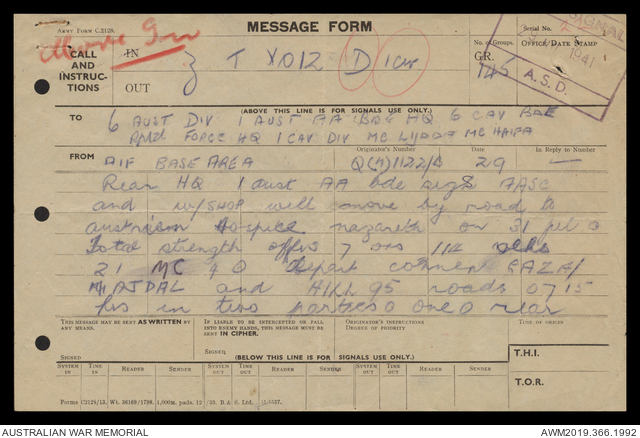 Army Form C.2128. MESSAGE FORM Serial No.
Above Inn
CALL AND INSTRUCTIONS IN T X012 D No. of Groups. GR. 145 OFFICE DATE STAMP
OUT
SIGNAL 1941 A.S.D.
(ABOVE THIS LINE IS FOR SIGNALS USE ONLY.)
TO 6 AUST DIV 1 AUST AA BDE HQ 6 CAV BDE
FORCE HQ 1 CAV DIV MC LYDDA MC HAIFA
FROM AIF BASE AREA Originator's Number Q(M)1122/A Date 29 In Reply to Number —
Rear HQ 1 aust AA bde sigs AASC
and w/shop will move by road to
australian Hospice nazareth on 31 jul
total strength offrs 7 ors 114
21 MC depart corner GAZA/
MAJDAL and HILL 95 roads 0715
hrs in two parties one rear
THIS MESSAGE MAY BE SENT AS WRITTEN BY ANY MEANS. IF LIABLE TO BE INTERCEPTED OR FALL INTO ENEMY HANDS, THIS MESSAGE MUST BE SENT IN CIPHER. ORIGINATOR'S INSTRUCTIONS DEGREE OF PRIORITY TIME OF ORIGIN
SIGNED SIGNED
(BELOW THIS LINE IS FOR SIGNALS USE ONLY.)
T.H.I.
SYSTEM IN TIME IN READER SENDER SYSTEM OUT TIME OUT READER SENDER SYSTEM OUT TIME OUT READER SENDER
T.O.R.
Forms C2128/13. Wt. 36169/1798.
AUSTRALIAN WAR MEMORIAL AWM2019.366.1992